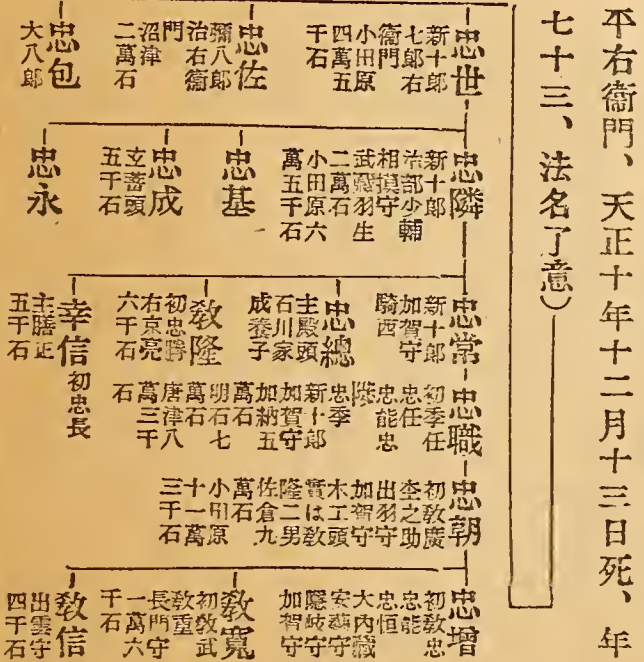 平右衞門、天正十年十二月十三日死、年
七十三、法名了意)
忠世
新十郎
七郎右
衞門
小田原
四萬五
千石
忠佐
彌八郎
治右衞
門
沼津
二萬石
忠包
大八郎
忠隣
新十郎
治部少輔
相摸守
武藏羽生
二萬石
小田原六
萬五千石
忠基
忠成
玄蕃頭
五千石
忠永
忠常
新十郎
加賀守
騎西
忠總
主殿頭
石川家
成養子
敎隆
初忠勝
右京亮
六千石
幸信
初忠長
主膳正
五千石
忠職
初季任
忠任
忠能忠
忠季
新十郎
加賀守
加納五
萬石
明石七
萬石
唐津八
萬三千
石
忠朝
初敎廣
杢之助
出羽守
加賀守
木工頭
實は敎
隆二男
佐倉九
萬石
小田原
十一萬
三千石
忠增
初敎忠
忠能
忠恒
大內藏
安藝守
隱岐守
加賀守
敎寬
初敎武
敎重
長門守
一萬六
千石
敎信
出雲守
四千石